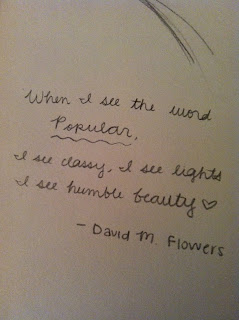 When I see the word
Popular,
I see classy, I see lights
I see humble beauty ♡
- David M. Flowers